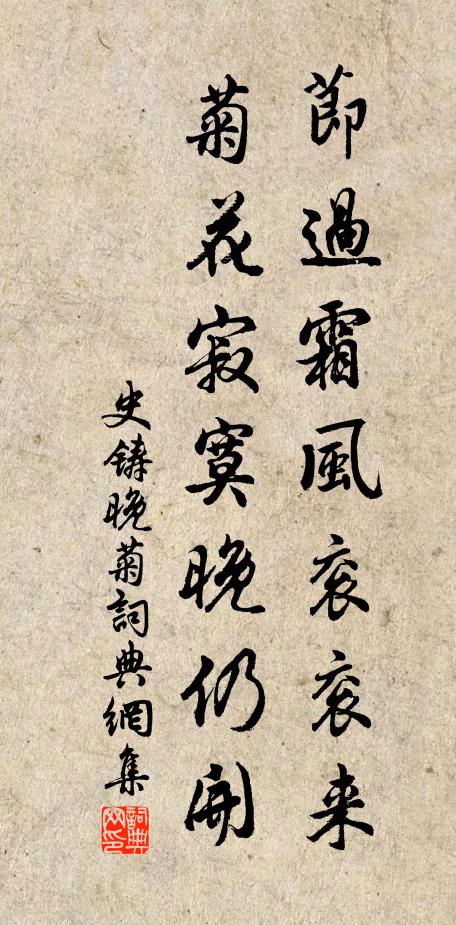 節過霜風衮衮来
菊花寂寞晚仍開
史鑄晚菊詞典網集
詞典网印